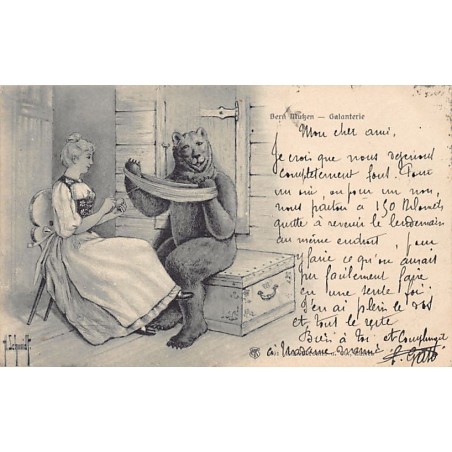 Bern Mutzen — Galanterie
Mon cher ami,
Je crois que nous devenons
complètement fous. Pour
un oui, ou pour un non,
nous partons à 150 kilomèt,
quitte à revenir le lendemain
au même endroit, pour
faire ce qu'on aurait
pu facilement faire
en une seule fois!
J'en ai plein le dos
et, tout le reste
Bien à toi et
à Madame